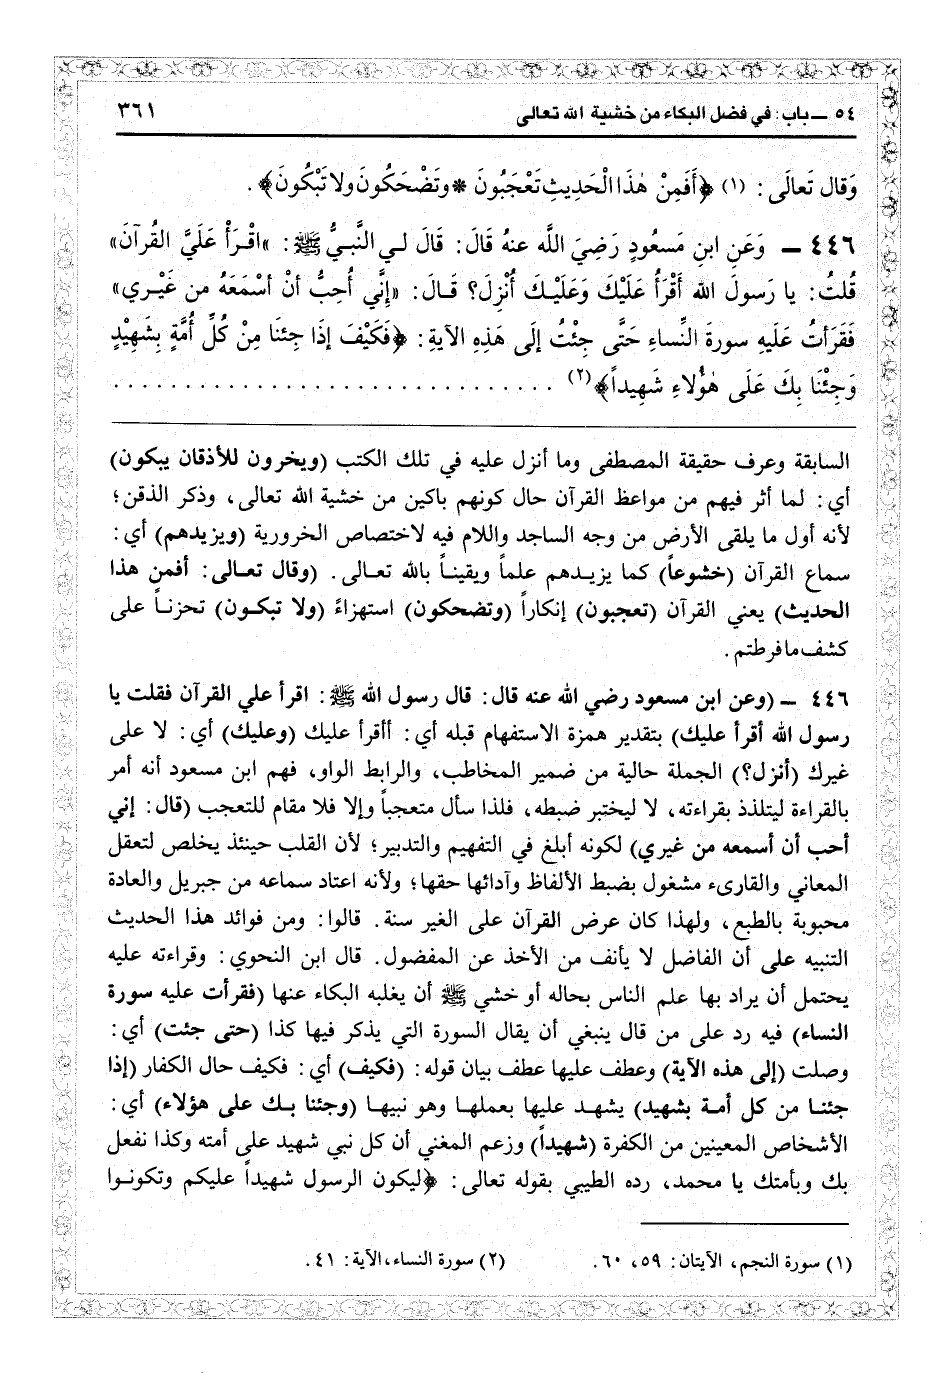 ٥٤ ــ باب: في فضل البكاء من خشية الله تعالى ٣٦١
وَقال تَعالَى: (١) ﴿أَفَمِنْ هَذَا الْحَدِيثِ تَعْجَبُونَ * وتَضْحَكُونَ ولا تَبْكُونَ﴾.
٤٤٦ ــ وَعَن ابنِ مَسعُودٍ رَضِيَ اللَّه عنهُ قَالَ: قَالَ لي النَّبيُّ ﷺ: «اقْرَأْ عَلَيَّ القُرآنَ»
قُلتُ: يا رَسولَ الله أَقْرَأُ عَلَيْكَ وَعَلَيْكَ أُنْزِلَ؟ قَالَ: «إِنَّي أُحِبُّ أنْ أسْمَعَهُ من غَيْرِي»
فَقَرَأتُ عَلَيهِ سورةَ النِّساءِ حَتَّى جِئْتُ إلَى هَذِهِ الآيةِ: ﴿فَكَيْفَ إذَا جِئنَا مِنْ كُلِّ أُمَّةٍ بِشَهِيْدٍ
وَجِئْنَا بِكَ عَلَى هٰؤُلاءِ شَهِيداً﴾(٢) . . . . . . . . . . . . . . . . . . . . . . . . . . . . . .
السابقة وعرف حقيقة المصطفى وما أنزل عليه في تلك الكتب (ويخرون للأذقان يبكون)
أي: لما أثر فيهم من مواعظ القرآن حال كونهم باكين من خشية الله تعالى، وذكر الذقن؛
لأنه أول ما يلقى الأرض من وجه الساجد واللام فيه لاختصاص الخرورية (ويزيدهم) أي:
سماع القرآن (خشوعاً) كما يزيدهم علماً ويقيناً بالله تعالى. (وقال تعالى: أفمن هذا
الحديث) يعني القرآن (تعجبون) إنكاراً (وتضحكون) استهزاءً (ولا تبكون) تحزناً على
كشف ما فرطتم.
٤٤٦ ــ (وعن ابن مسعود رضي الله عنه قال: قال رسول الله ﷺ: اقرأ علي القرآن فقلت يا
رسول الله أقرأ عليك) بتقدير همزة الاستفهام قبله أي: أأقرأ عليك (وعليك) أي: لا على
غيرك (أنزل؟) الجملة حالية من ضمير المخاطب، والرابط الواو، فهم ابن مسعود أنه أمر
بالقراءة ليتلذذ بقراءته، لا ليختبر ضبطه، فلذا سأل متعجباً وإلا فلا مقام للتعجب (قال: إني
أحب أن أسمعه من غيري) لكونه أبلغ في التفهيم والتدبير؛ لأن القلب حينئذ يخلص لتعقل
المعاني والقارىء مشغول بضبط الألفاظ وآدائها حقها؛ ولأنه اعتاد سماعه من جبريل والعادة
محبوبة بالطبع، ولهذا كان عرض القرآن على الغير سنة. قالوا: ومن فوائد هذا الحديث
التنبيه على أن الفاضل لا يأنف من الأخذ عن المفضول. قال ابن النحوي: وقراءته عليه
يحتمل أن يراد بها علم الناس بحاله أو خشي ﷺ أن يغلبه البكاء عنها (فقرأت عليه سورة
النساء) فيه رد على من قال ينبغي أن يقال السورة التي يذكر فيها كذا (حتى جئت) أي:
وصلت (إلى هذه الآية) وعطف عليها عطف بيان قوله: (فكيف) أي: فكيف حال الكفار (إذا
جئنا من كل أمة بشهيد) يشهد عليها بعملها وهو نبيها (وجئنا بك على هؤلاء) أي:
الأشخاص المعينين من الكفرة (شهيداً) وزعم المغني أن كل نبي شهيد على أمته وكذا نفعل
بك وبأمتك يا محمد، رده الطيبي بقوله تعالى: ﴿ليكون الرسول شهيداً عليكم وتكونوا
(١) سورة النجم، الآيتان: ٥٩، ٦٠. (٢) سورة النساء، الآية: ٤١.